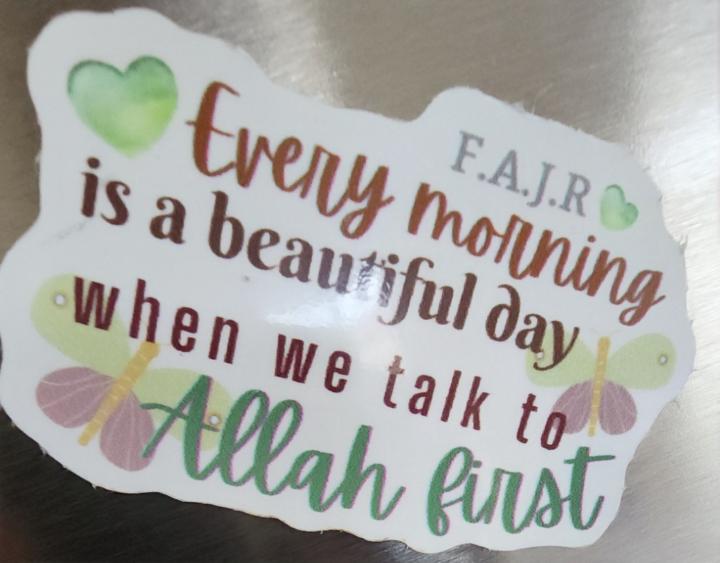 F.A.J.R
Every morning
is a beautiful day
when we talk to
Allah first